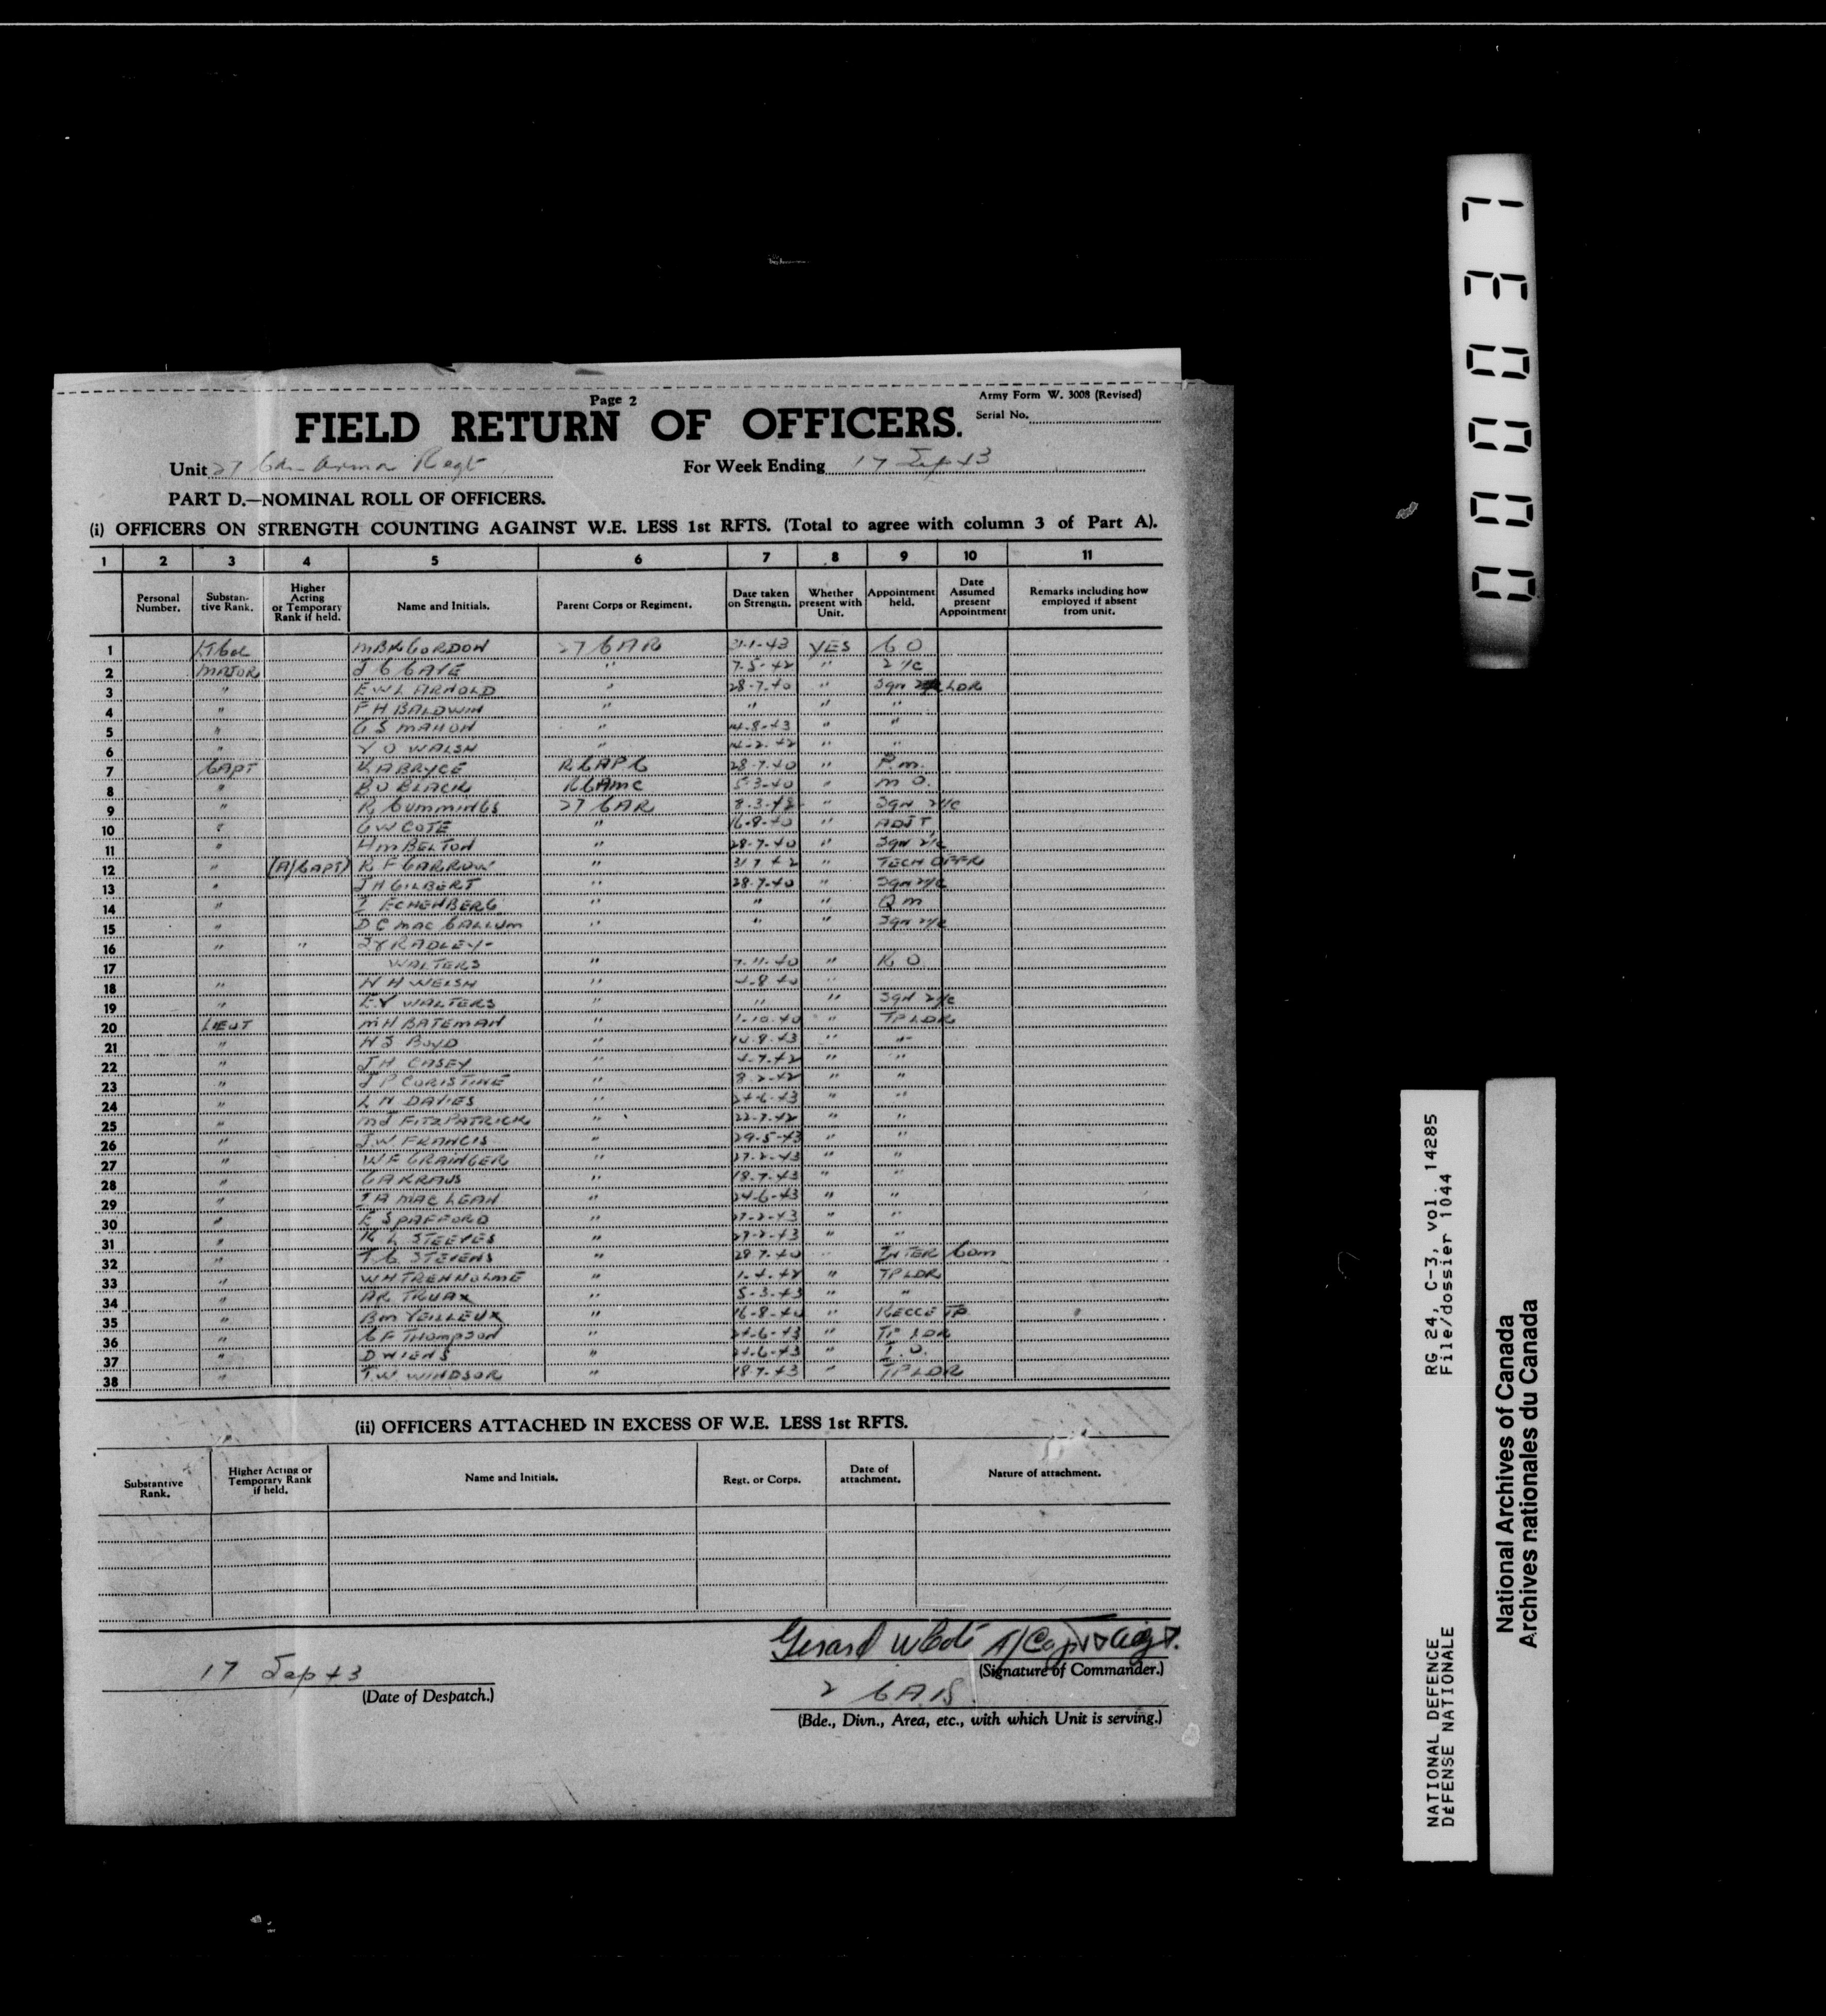 Page 2
Army Form W. 3008 (Revised)
FIELD RETURN OF OFFICERS.
Serial No.
Unit 27 Cdn Armd Regt
For Week Ending 17 Sep 43
PART D.—NOMINAL ROLL OF OFFICERS.
(i) OFFICERS ON STRENGTH COUNTING AGAINST W.E. LESS 1st RFTS. (Total to agree with column 3 of Part A).
1 2 3 4 5 6 7 8 9 10 11
Personal Number. Substan-tive Rank. Higher Acting or Temporary Rank if held. Name and Initials. Parent Corps or Regiment. Date taken on Strength. Whether present with Unit. Appointment held. Date Assumed present Appointment Remarks including how employed if absent from unit.
1 LT Col MBK GORDON 27 CAR 31-1-43 YES CO
2 MAJOR J C GAYE " 7-5-42 " 2 i/c
3 " E W L ARNOLD " 28-7-40 " Sqn LDR
4 " F H BALDWIN " " " "
5 " G S MAHON " 14-8-43 " "
6 " V O WALSH " 14-2-42 " "
7 CAPT K A BRYCE RCAPC 28-7-40 " P.M.
8 " B O BLACK RCAMC 5-3-40 " M O.
9 " R CUMMINGS 27 CAR 8-3-42 " Sqn 2i/c
10 " G W COTE " 16-8-40 " ADJT
11 " H M BELTON " 28-7-40 " Sqn 2i/c
12 " (A/CAPT) R F GARROW " 31 7 42 " TECH OFFR
13 " J H GILBERT " 28-7-40 " Sqn 2i/c
14 " L ECHENBERG " " " Q M
15 " D C MAC CALLUM " " " Sqn 2i/c
16 " " S V RADLEY-
17 WALTERS " 7-11-40 " R O
18 " N H WELSH " 4-8 40 "
19 " E V WALTERS " " " Sqn 2i/c
20 LIEUT M H BATEMAN " 1-10-40 " TP LDR
21 " H S BOYD " 14-8-43 " "
22 " J H CASEY " 4-7-42 " "
23 " J P CORISTINE " 8-2-42 " "
24 " L N DAVIES " 24-6-43 " "
25 " M J FITZPATRICK " 22-7-42 " "
26 " J.W FRANCIS " 29-5-43 " "
27 " W F GRAINGER " 27-2-43 " "
28 " G A KRAUS " 18-7-43 " "
29 " I A MAC LEAN " 24-6-43 " "
30 " E SPAFFORD " 27-2-43 " "
31 " R L STEEVES " 27-2-43 " "
32 " T C STEVENS " 28 7-40 " INTER Com
33 " W H TRENHOLME " 1-4-42 " TP LDR
34 " A R TRUAX " 5-3-43 " "
35 " B M VEILLEUX " 16-8-40 " RECCE TP
36 " C F THOMPSON " 24-6-43 " TP LDR
37 " D WIENS " 24-6-43 " I.O.
38 " T.W WINDSOR " 18-7-43 " TP LDR
(ii) OFFICERS ATTACHED IN EXCESS OF W.E. LESS 1st RFTS.
Substantive Rank. Higher Acting or Temporary Rank if held. Name and Initials. Regt. or Corps. Date of attachment. Nature of attachment.
17 Sep 43
(Date of Despatch.)
Gerard W Coté A/Capt & Adjt.
(Signature of Commander.)
2 CAB.
(Bde., Divn., Area, etc., with which Unit is serving.)
000037
RG 24, C-3, vol. 14285
File/dossier 1044
NATIONAL DEFENCE
DÉFENSE NATIONALE
National Archives of Canada
Archives nationales du Canada